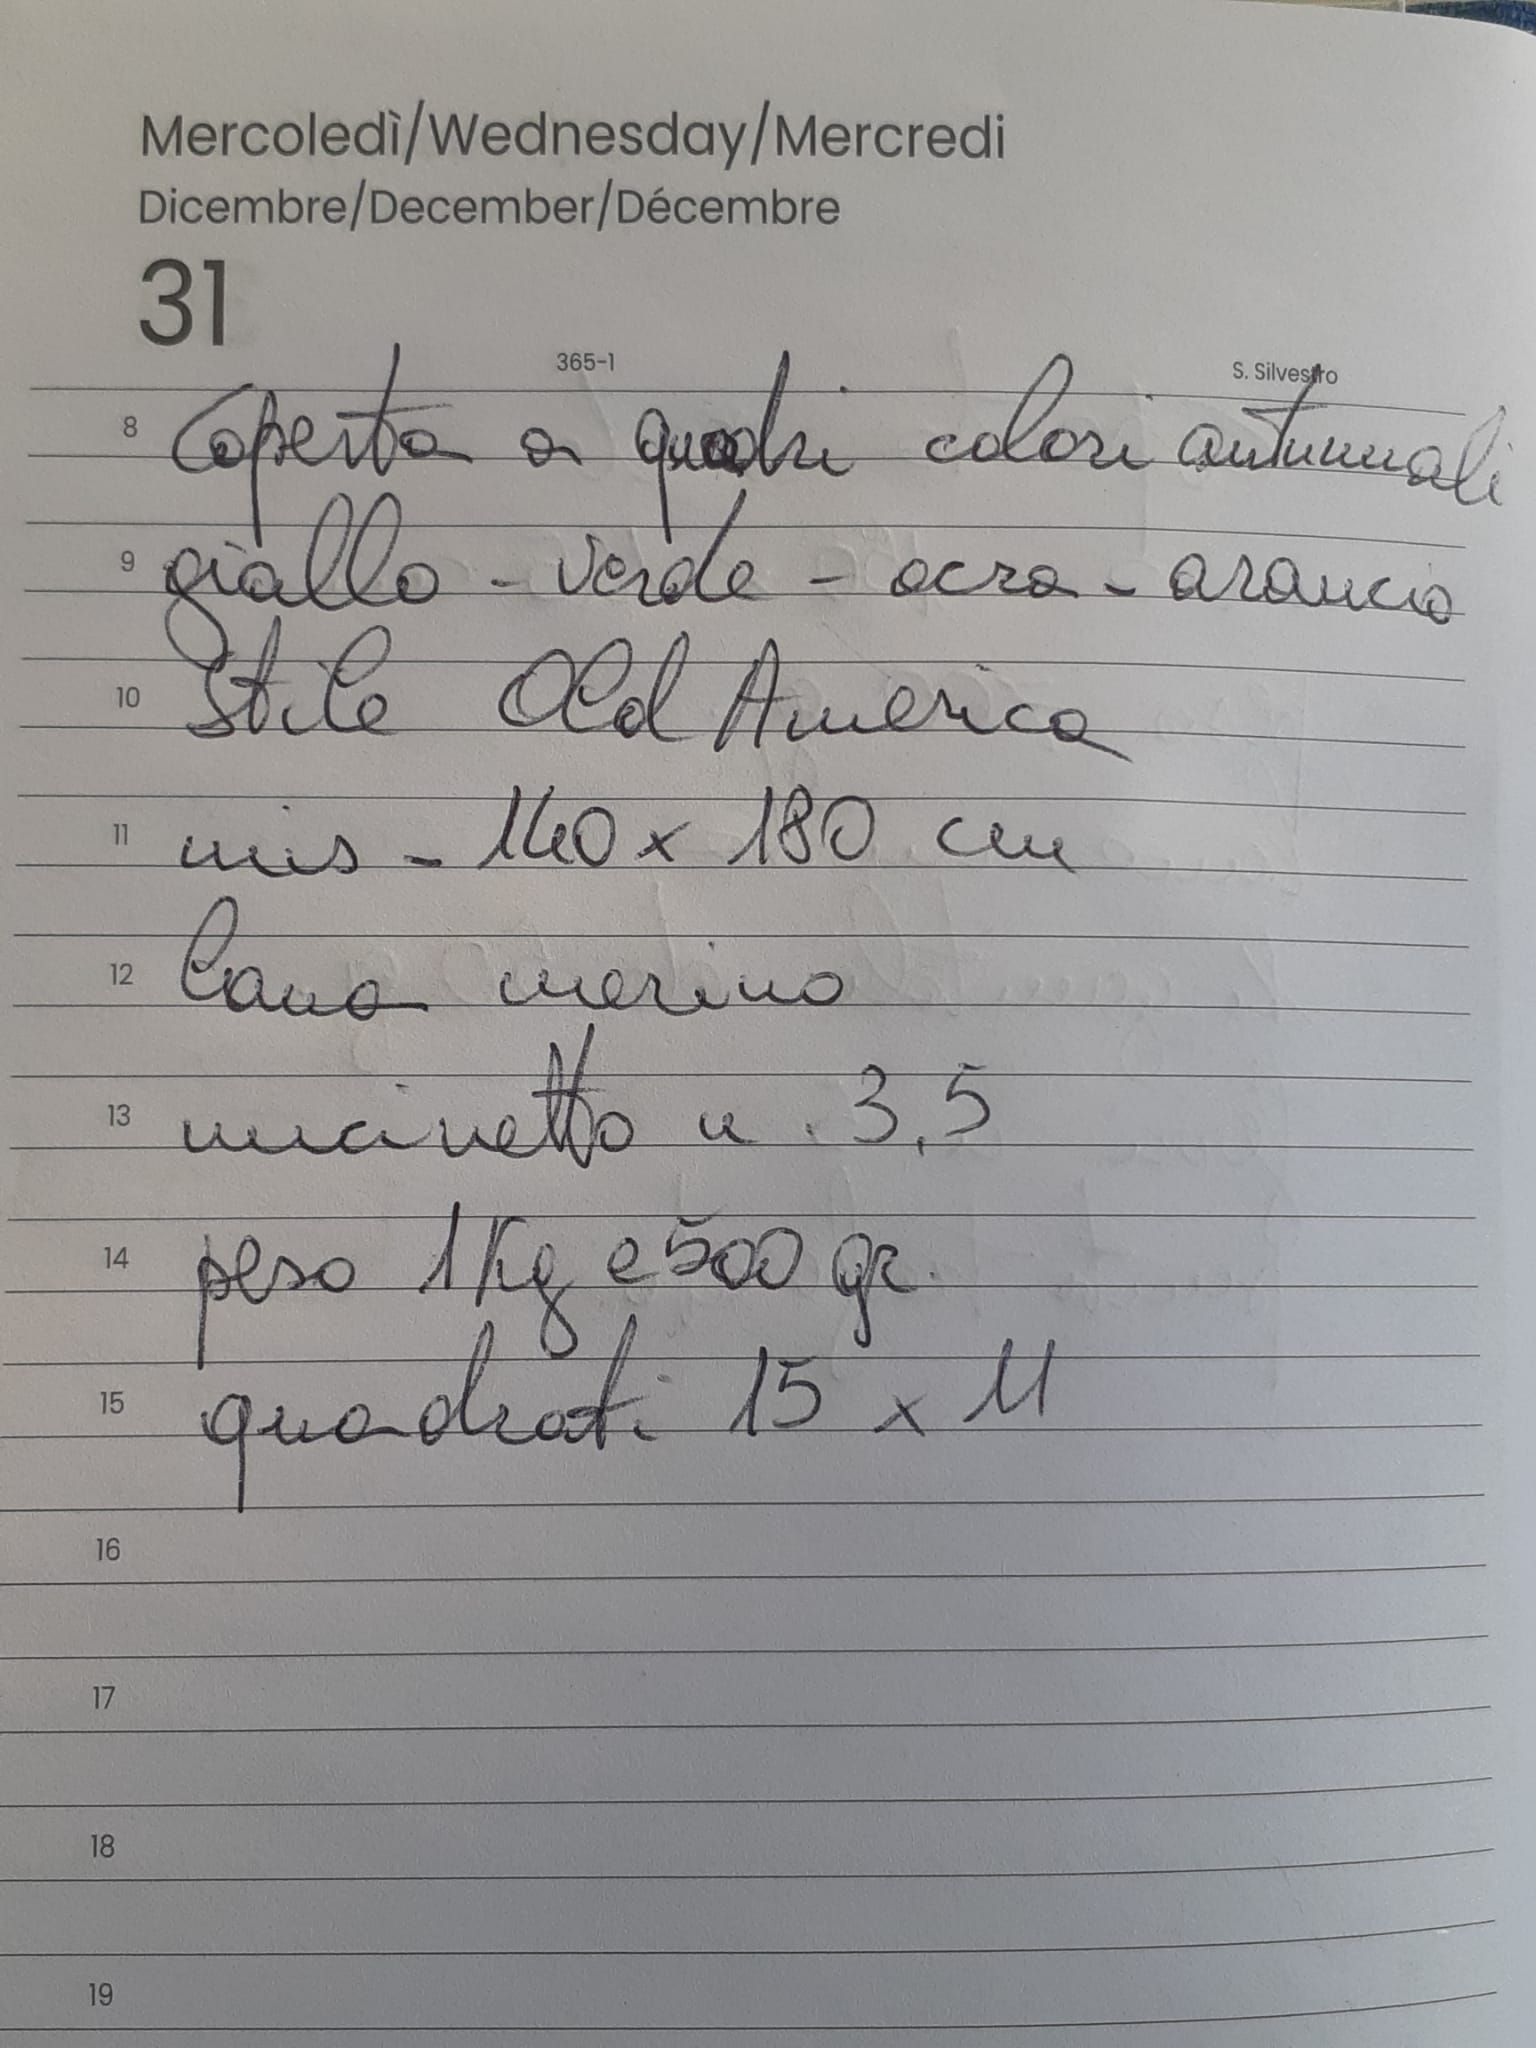 Mercoledì/Wednesday/Mercredi
Dicembre/December/Décembre
31
365-1 S. Silvestro
8 Coperta a quadri colori autunnali
9 giallo - verde - ocra - arancio
10 Stile Old America
11 mis - 140 x 180 cm
12 lana merino
13 uncinetto n. 3,5
14 peso 1 Kg e 500 gr.
15 quadrati 15 x 11
16
17
18
19